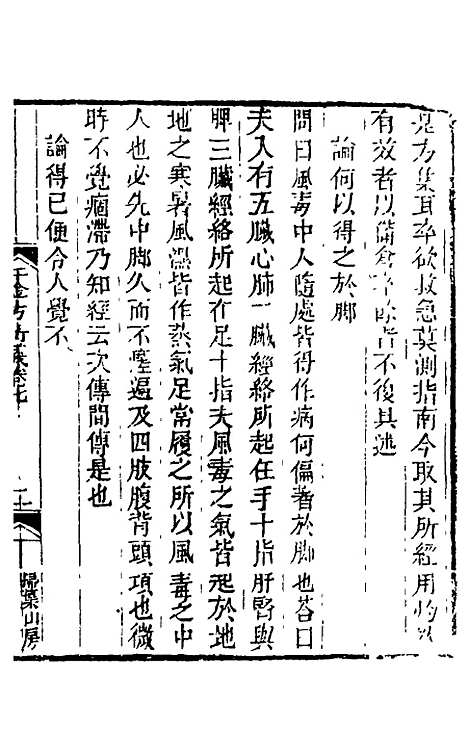 是方集耳卒欲救急莫測指南今取其所經用灼然
有效者以備倉卒餘者不復具述
論何以得之於脚
問曰風毒中人隨處皆得作病何偏著於脚也荅曰
夫人有五臟心肺二臟經絡所起在手十指肝腎與
脾三臟經絡所起在足十指夫風毒之氣皆起於地
地之寒暑風濕皆作蒸氣足常履之所以風毒之中
人也必先中脚久而不瘥遍及四肢腹背頭項也微
時不覺痼滯乃知經云次傳間傳是也
論得已便令人覺不
千金方衍義卷七
二十
掃葉山房